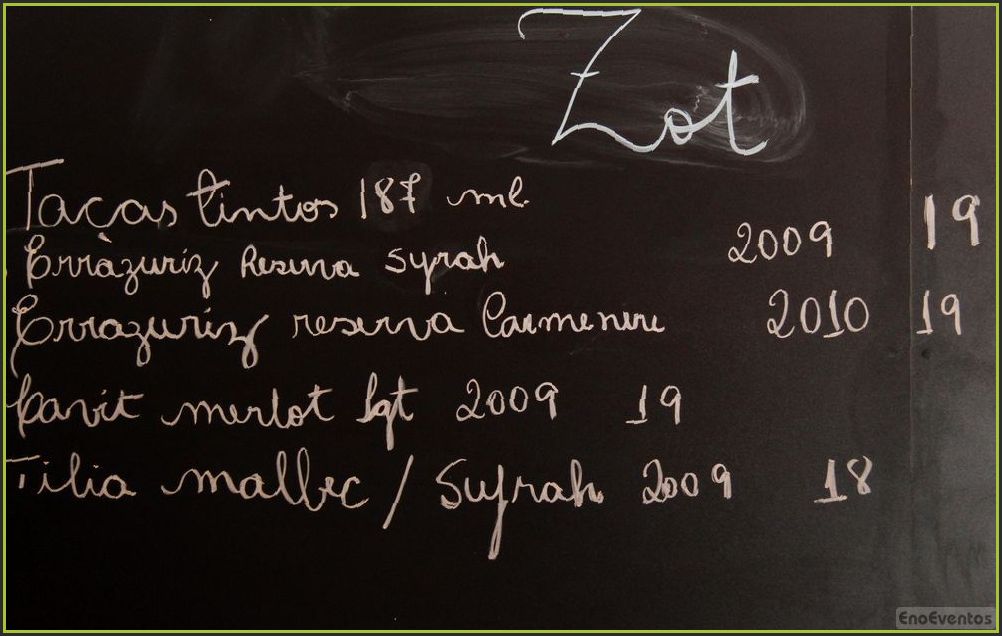 Zot
Taças tintos 187 ml.
Erràzuriz Reserva Syrah 2009 19
Errazuriz reserva Carmenere 2010 19
Cavit merlot Igt 2009 19
Tilia malbec / Syrah 2009 18
EnoEventos